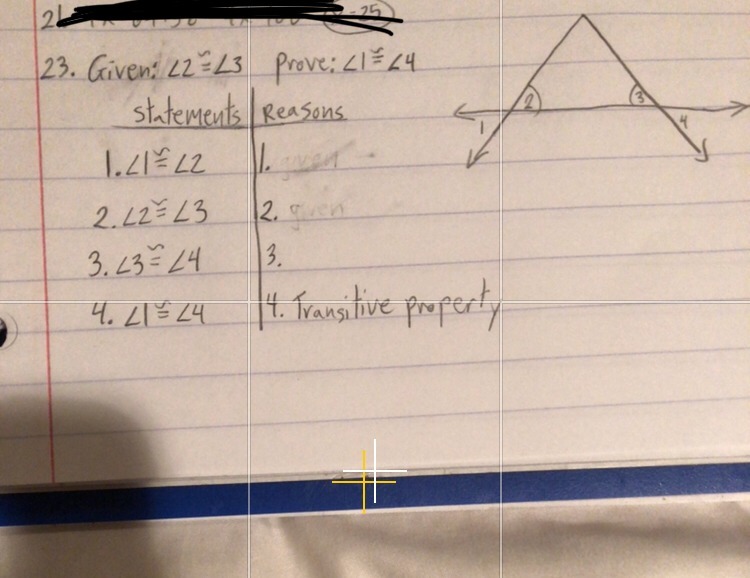 21.
23. Given: ∠2≅∠3 Prove: ∠1≅∠4
Statements Reasons
1. ∠1≅∠2 1. given
2. ∠2≅∠3 2. given
3. ∠3≅∠4 3.
4. ∠1≅∠4 4. Transitive property
2 3
1 4